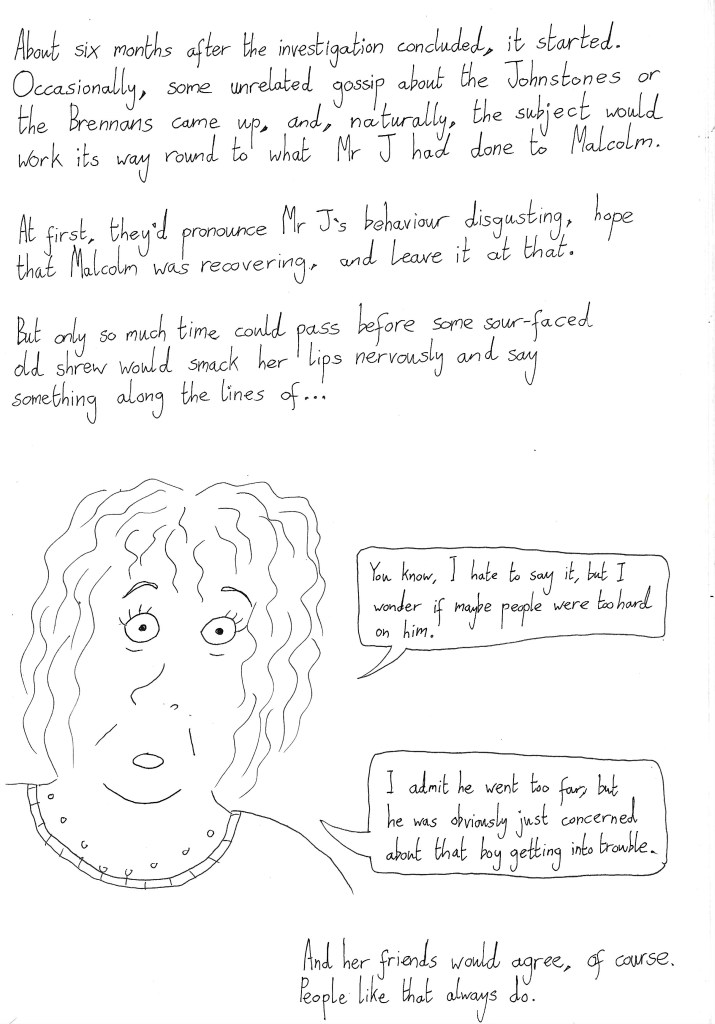 About six months after the investigation concluded, it started.
Occasionally, some unrelated gossip about the Johnstones or
the Brennans came up, and, naturally, the subject would
work its way round to what Mr J had done to Malcolm.
At first, they'd pronounce Mr J's behaviour disgusting, hope
that Malcolm was recovering, and leave it at that.
But only so much time could pass before some sour-faced
old shrew would smack her lips nervously and say
something along the lines of...
You know, I hate to say it, but I
wonder if maybe people were too hard
on him.
I admit he went too far, but
he was obviously just concerned
about that boy getting into trouble.
And her friends would agree, of course.
People like that always do.